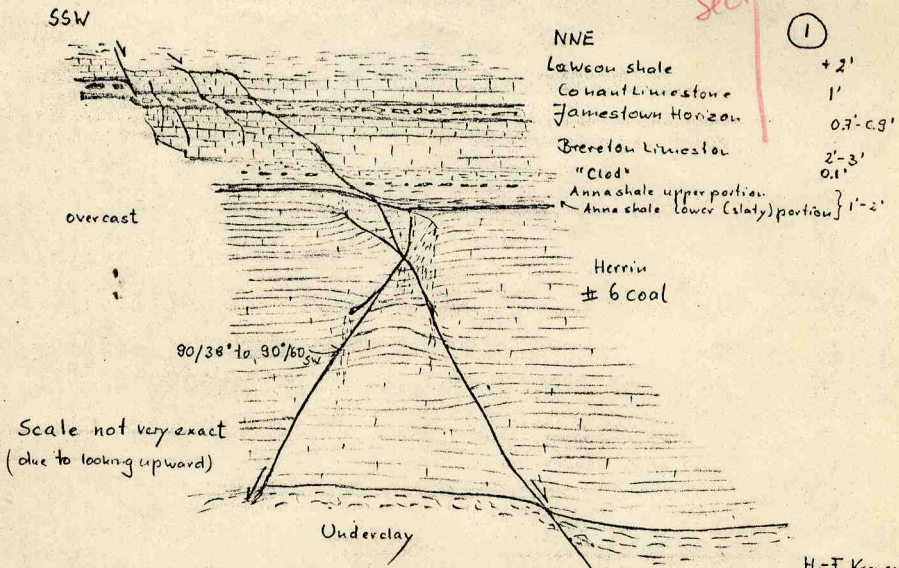 SSW
NNE
1
Lawson shale + 2'
Conant Limestone 1'
Jamestown Horizon 0.7'-0.9'
Brereton Limeston 2'-3'
"Clod" 0.1'
Anna shale upper portion
Anna shale lower (slaty) portion } 1'-2'
overcast
Herrin
# 6 coal
90/38° to 90°/60 SW
Scale not very exact
(due to looking upward)
Underclay
H.-F.